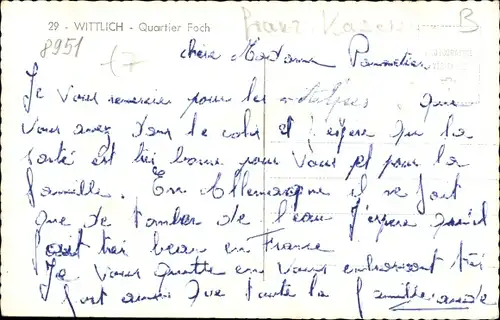 29 - WITTLICH - Quartier Foch
Franz. Kasern B
8951
chère Madame
Je vous remercie pour les que
vous avez dans le colis et j'espere que la
santé est très bonne pour vous et pour la
famille. En Allemagne il ne fait
que de tomber de l'eau j'espere qu'il
fait tres beau en France
Je vous quitte en vous embrassant très
fort ainsi que toute la famille